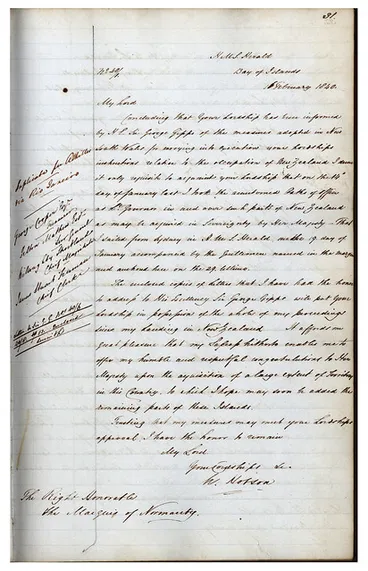 31.
H.M.S. Herald
No 40/1
Bay of Islands
February 1840.
My Lord
Concluding that Your Lordship has been informed
by H.E. Sir George Gipps of the measures adopted in New
South Wales for carrying into execution your Lordships
instructions relative to the occupation of New Zealand I deem
it only requisite to acquaint your Lordship that on the 14th
day of January last I took the oaths of office
as Lt Governor in and over such parts of New Zealand
as may be acquired in Sovereignty by Her Majesty - That
I sailed from Sydney in H.M.S. Herald on the 19 day of
January accompanied by the Gentlemen named in the margin
and anchored here on the 29 .
The enclosed copies of letters that I have had the honor
to address to his Excellency Sir George Gipps will put your
Lordship in possession of the whole of my proceedings
since my landing in New Zealand It affords me
great pleasure that my Success hitherto enables me to
offer my humble and respectful congratulations to Her
Majesty upon the acquisition of a large extent of Territory
in this Country, to which I hope may soon be added the
remaining parts of these Islands.
Trusting that my measures may meet your Lordships
approval, I have the honor to remain
My Lord
Your Lordships &c
W. Hobson
The Right Honorable
the Marquis of Normanby.
Duplicate for
via Rio Janeiro
George Cooper Esqr
Felton Mathew Esqr
James Stuart Freeman
Chief Clerk